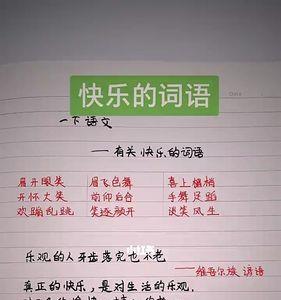 快乐的词语
一下语文
——有关快乐的词语
眉开眼笑 眉飞色舞 喜上眉梢
开怀大笑 前仰后合 手舞足蹈
欢蹦乱跳 笑逐颜开 谈笑风生
小红书
乐观的人牙齿落完也不老
——维吾尔族谚语
真正的快乐,是对生活的乐观,